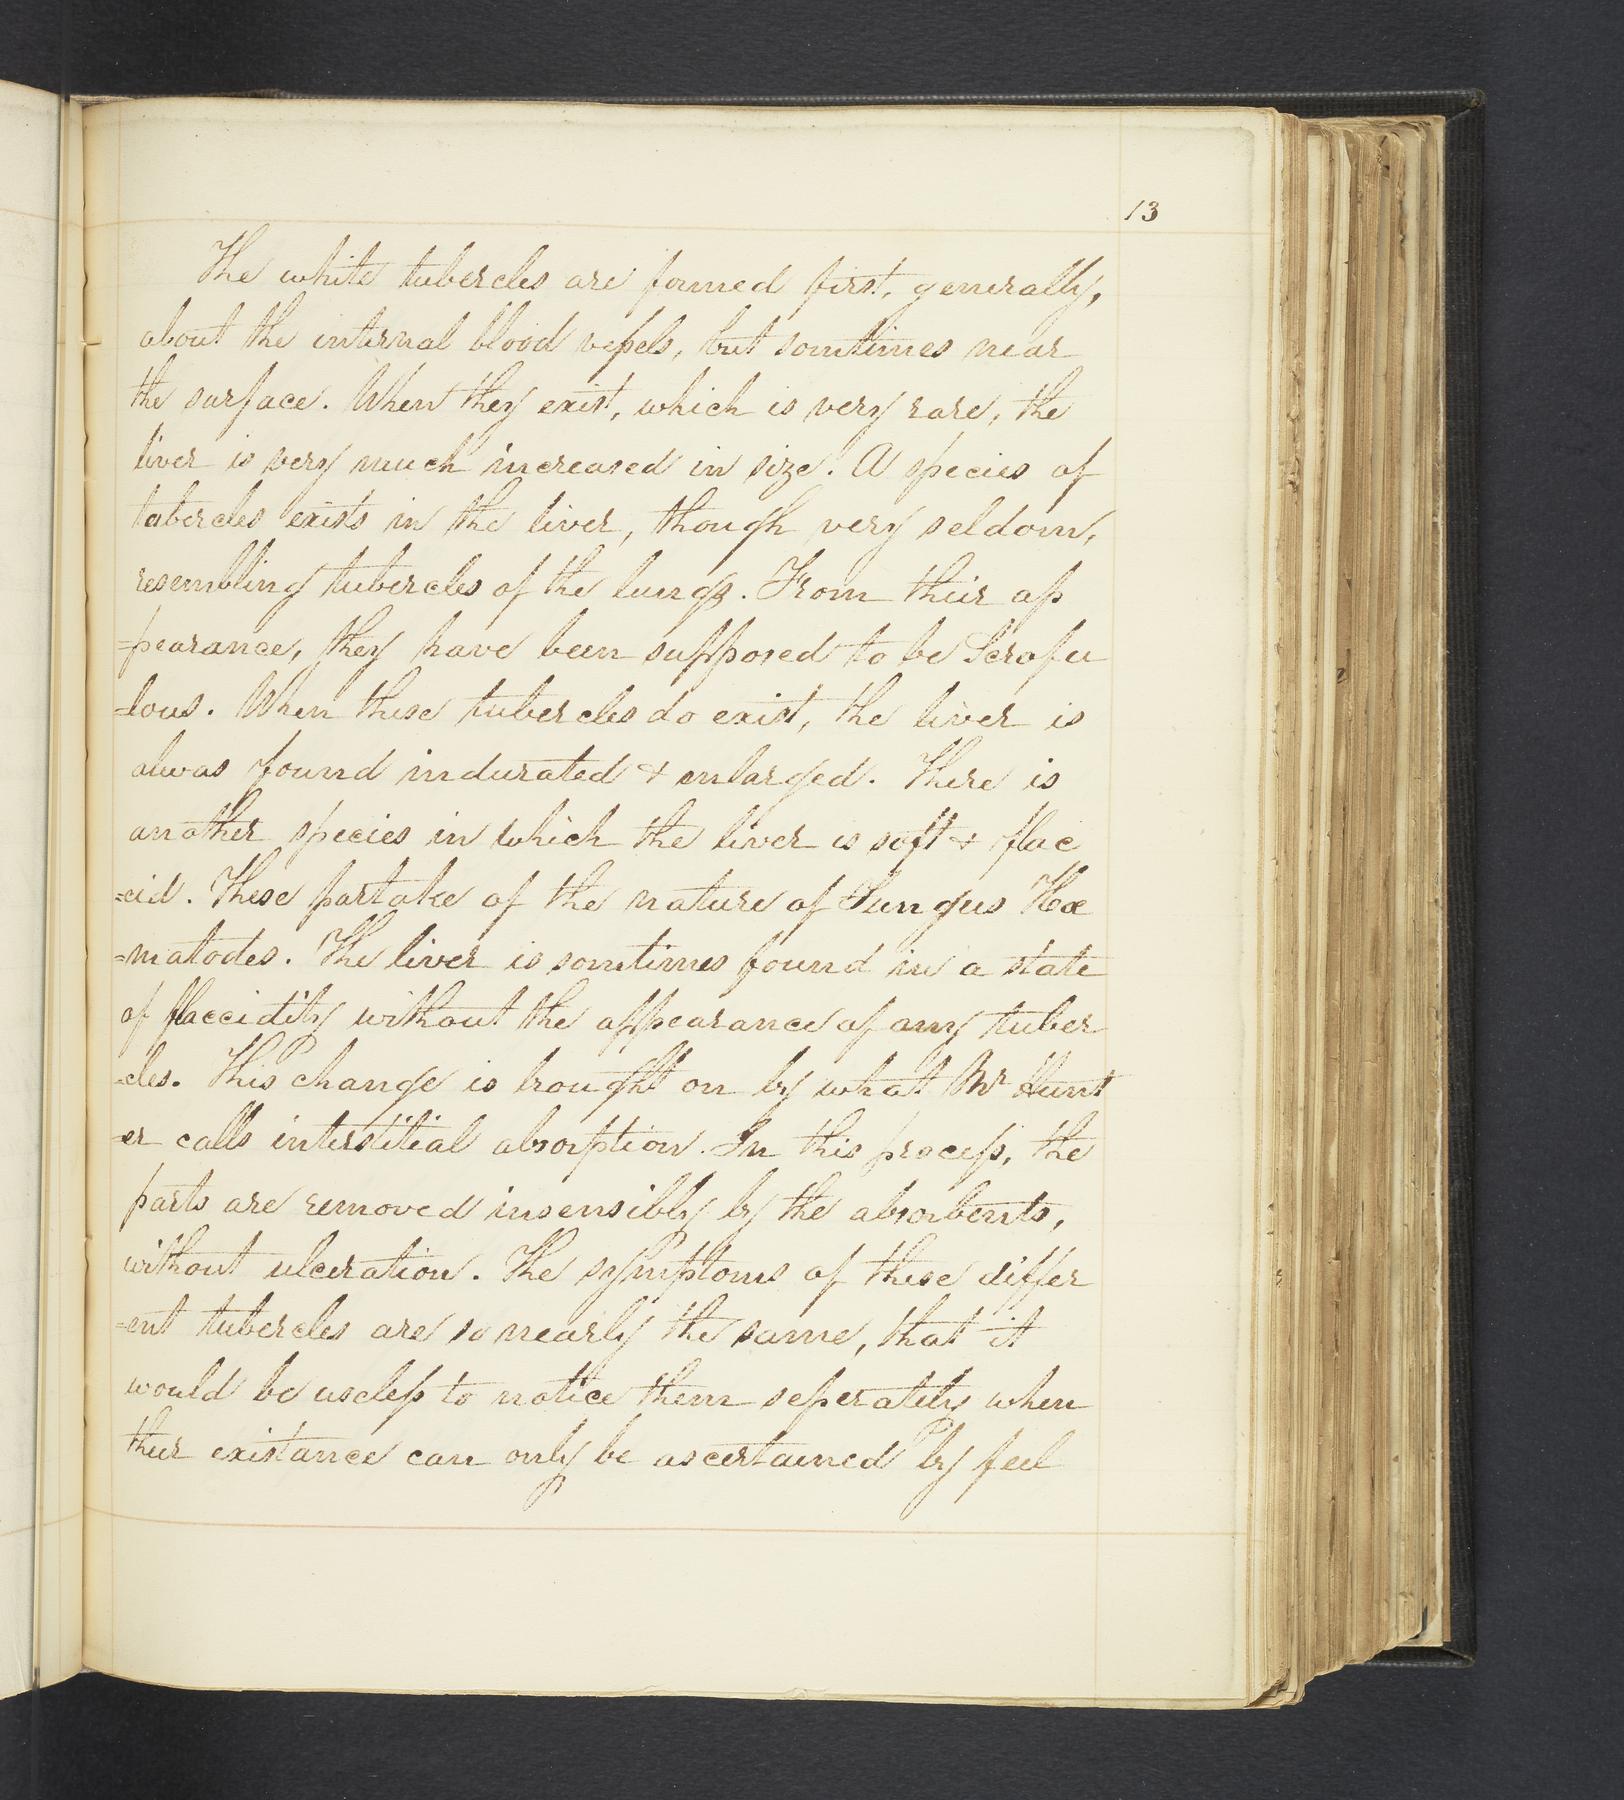 13
The white tubercles are formed first, generally,
about the internal blood vessels, but somtimes near
the surface. When they exist, which is very rare, the
liver is very much increased in size. A species of
tubercles exists in the liver, though very seldom,
resembling tubercles of the lungs. From their ap
=pearance, they have been supposed to be Scrofu
=lous. When these tubercles do exist, the liver is
alwas found indurated & enlarged. There is
another species in which the liver is soft & flac
=cid. These partake of the nature of Fungus Hæ
=matodes. The liver is somtimes found in a state
of flaccidity without the appearance of any tuber
=cles. This change is brought on by what Mr Hunt
=er calls interstitial absorption. In this process, the
parts are removed insensibly by the absorbents,
without ulceration. The symptoms of these differ
=ent tubercles are so nearly the same, that it
would be useless to notice them seperately when
their existance can only be ascertained by feel